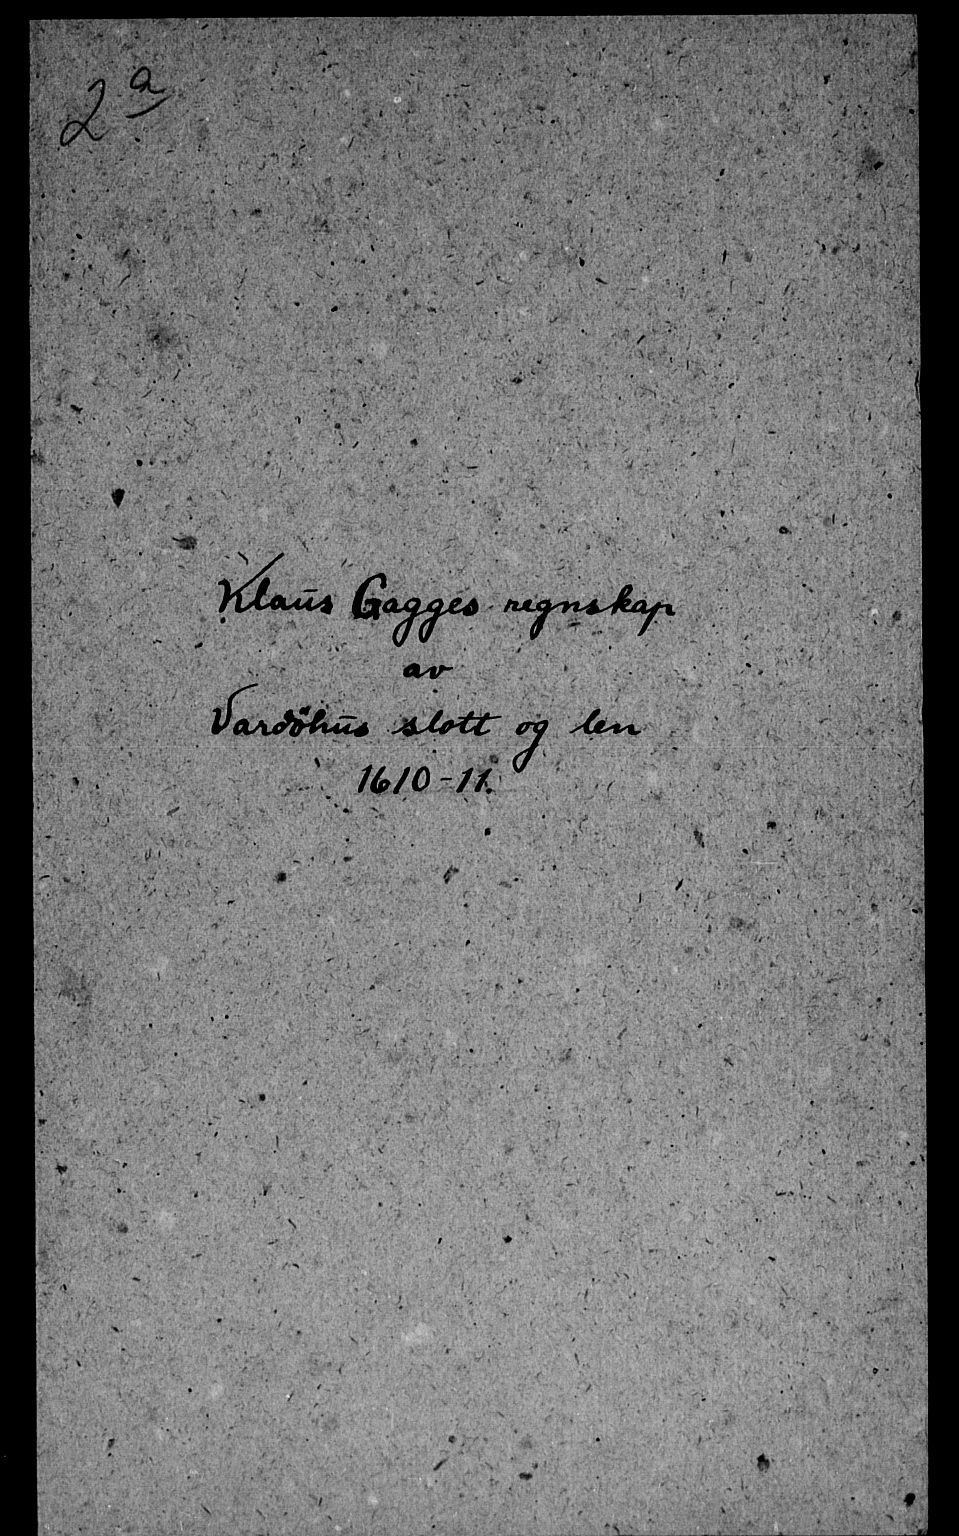 2a
Klaus Gagges regnskap
av
Vardöhus slott og len
1610-11.